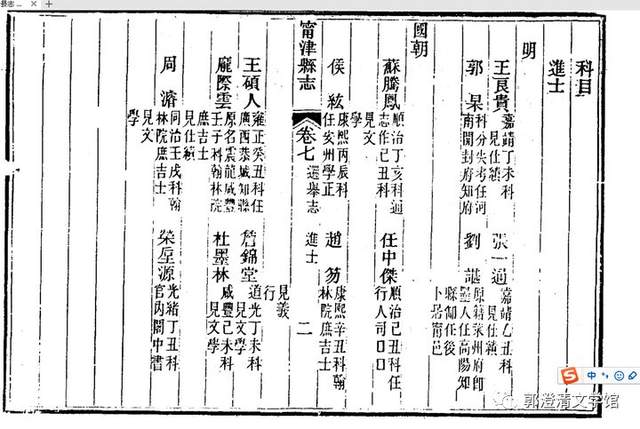 县志 ...
科目
進士
明
王良貴 嘉靖丁未科見仕績 張一通 嘉靖乙丑科見仕績
郭杲 科分失考任河南開封府知府 劉諶 原籍萊州府即墨人任高陽知縣卸任後卜居甯邑
國朝
蘇騰鳳 順治丁亥科通志作己丑科見文學 任中傑 順治己丑科任行人司口口
侯紘 康熙丙辰科任安州學正 趙笏 康熙辛丑科翰林院庶吉士
甯津縣志 卷七 選舉志 進士 二
王碩人 雍正癸丑科任廣西恭城知縣見義行 詹錦堂 道光丁未科見文學
龐際雲 原名震龍咸豐壬子科翰林院庶吉士見仕績 杜墨林 咸豐己未科見文學
周 同治壬戌科翰林院庶吉士見文學 榮厔源 光緒丁丑科官內閣中書
中
郭澄清文学馆